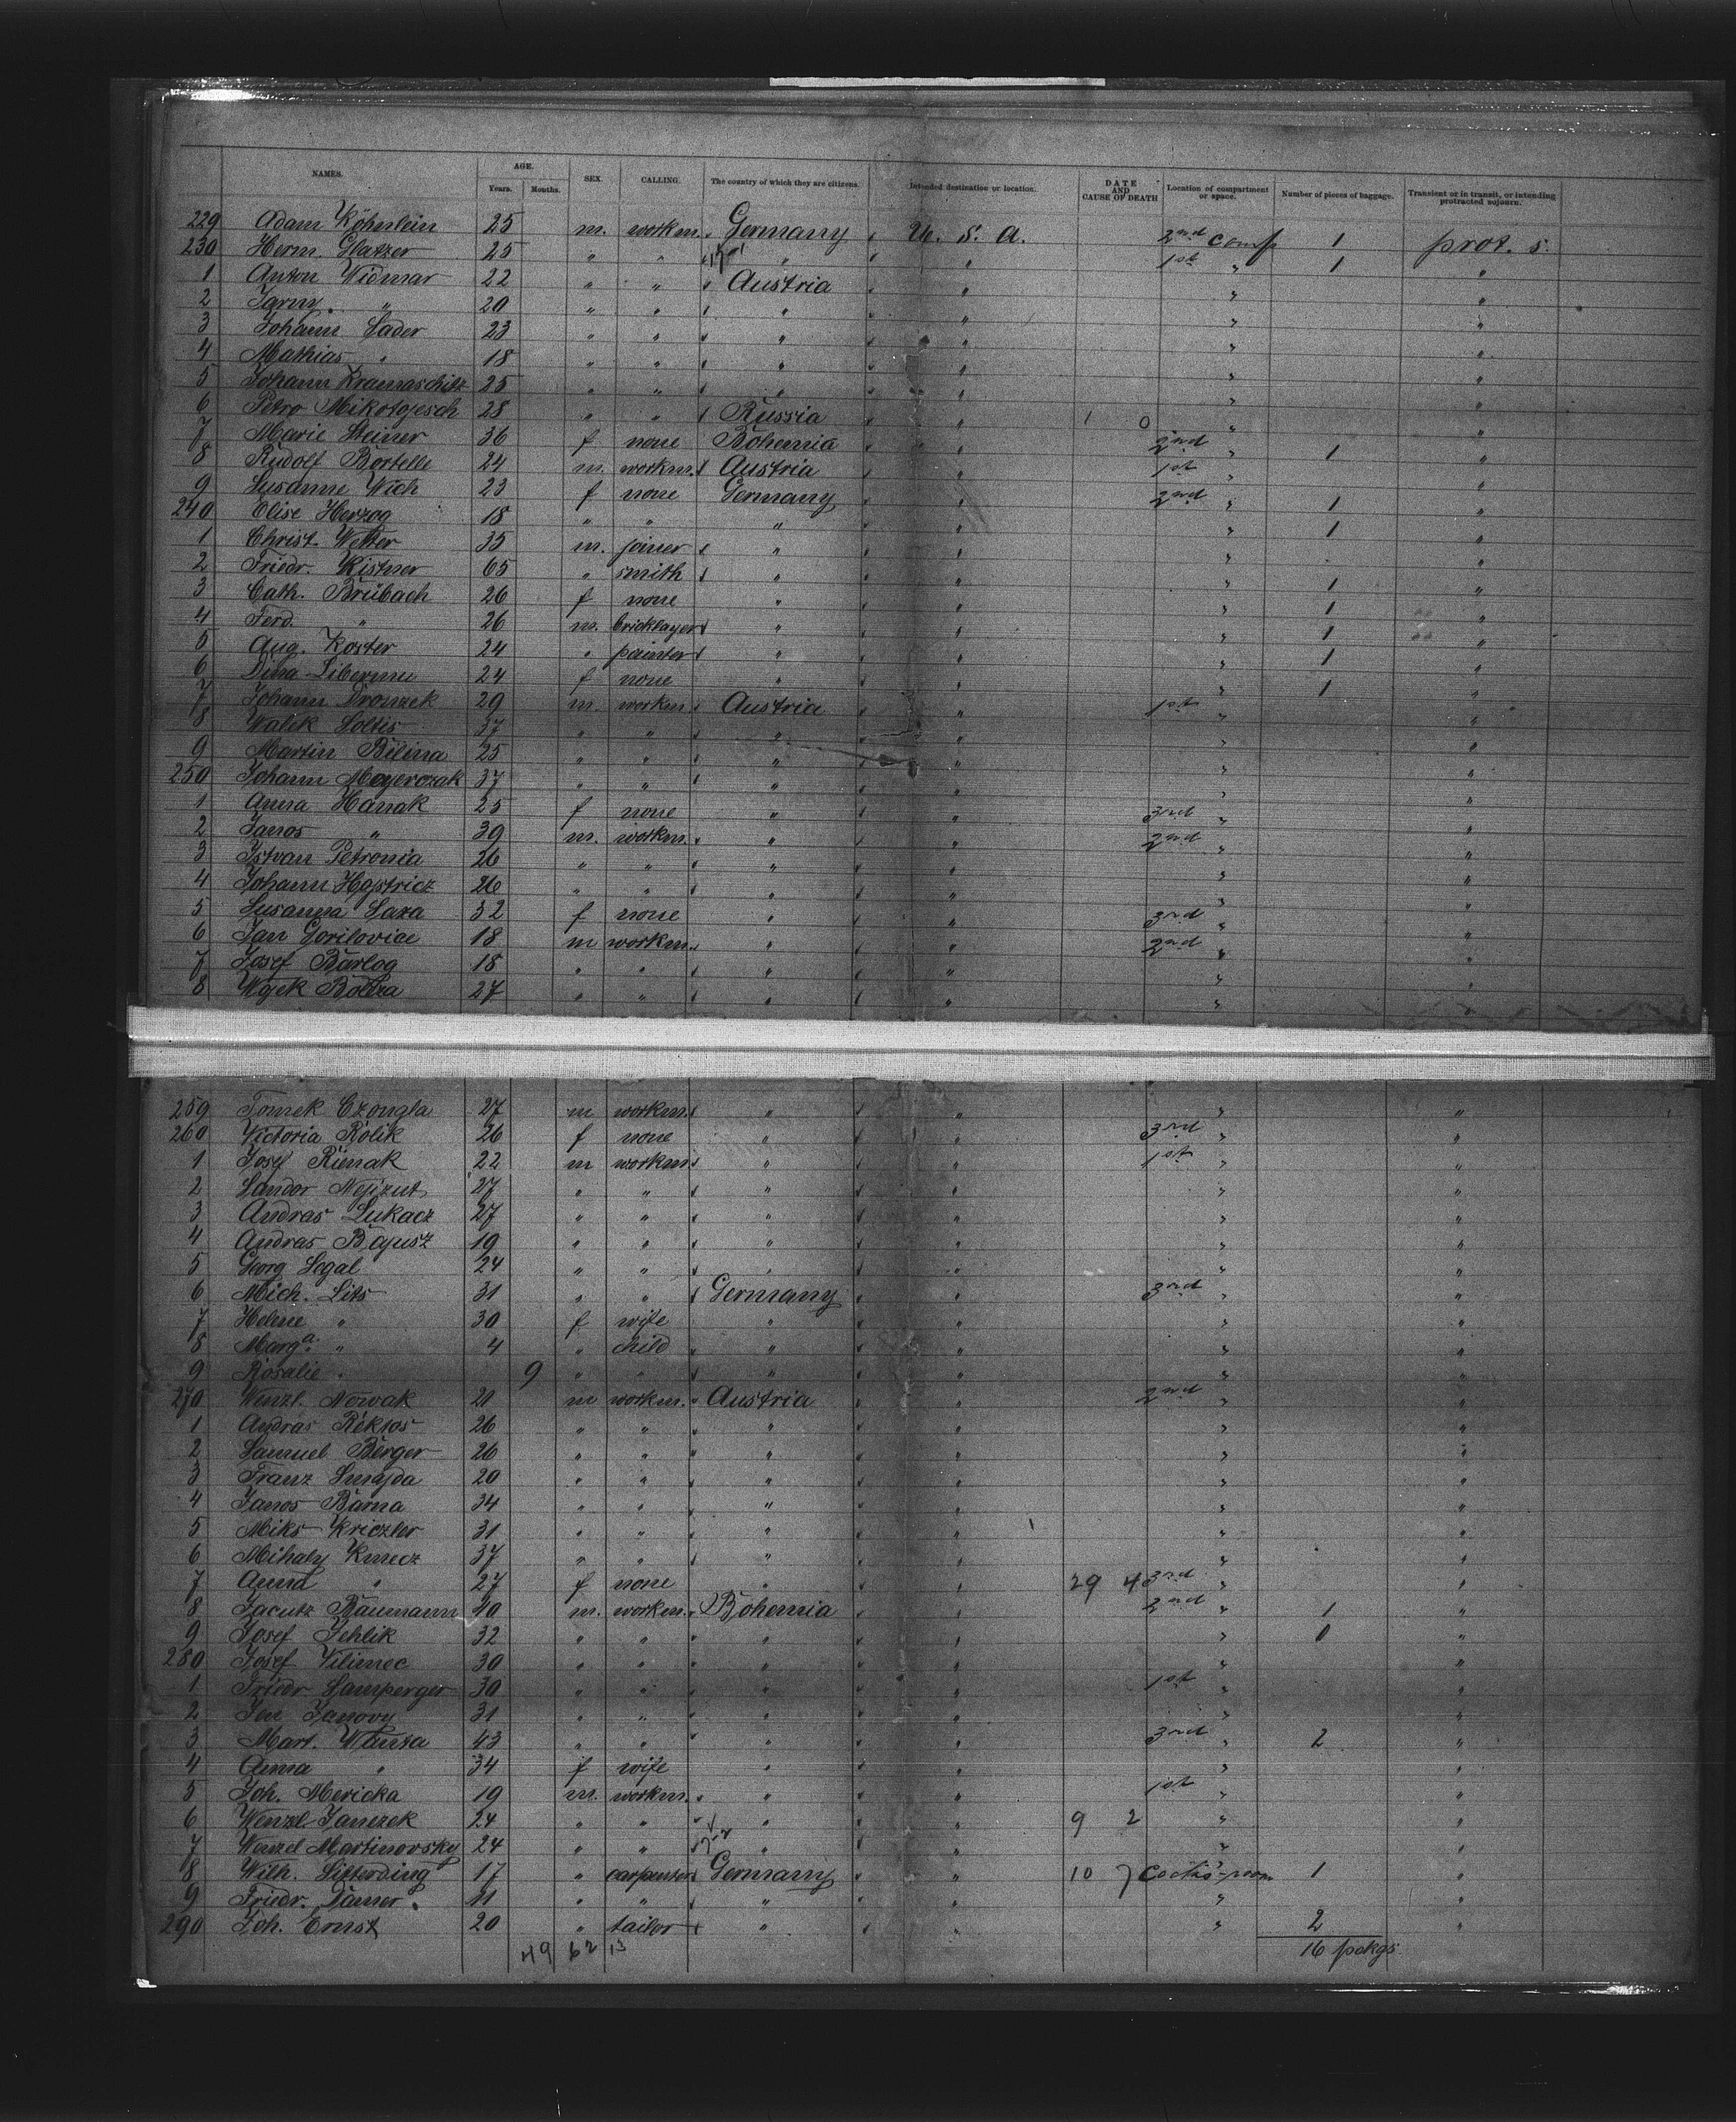 NAMES. AGE. Years. Months. SEX. CALLING. The country of which they are citizens. Intended destination or location. DATE AND CAUSE OF DEATH Location of compartment or space. Number of pieces of baggage. Transient or in transit, or intending protracted sojourn.
229 Adam Köhnlein 25 m. workm. Germany U. S. A. 2nd comp 1 prot. s.
230 Herm. Glatzer 25 " " " " 1st " 1 "
1 Anton Widmar 22 " " Austria " " "
2 " 20 " " " " " "
3 Johann Lader 23 " " " " " "
4 Mathias " 18 " " " " " "
5 Johann Kramaschitz 25 " " " " " "
6 Petro Mikotojesch 28 " " Russia " 1 0 " "
7 Marie Steiner 36 f none Bohemia " 2nd " 1 "
8 Rudolf Bortelle 24 m. workm. Austria " 1st " "
9 Susanne Wich 23 f none Germany " 2nd " 1 "
240 Elise Herzog 18 " " " " " 1 "
1 Christ. Wetter 35 m. joiner " " " "
2 Friedr. Kistner 65 " smith " " " 1 "
3 Cath. Brübach 26 f none " " " 1 "
4 Ferd. " 26 m. bricklayer " " " 1 "
5 Aug. Koster 24 " painter " " " 1 "
6 Dina 24 f none " " " 1 "
7 Johann Dronzek 29 m. workm. Austria " 1st " "
8 Walek Soltis 37 " " " " " "
9 Martin Bilina 25 " " " " " "
250 Johann Mayerczak 37 " " " " " "
1 Anna Hanak 25 f none " " 3rd " "
2 Janos " 39 m. workm. " " 2nd " "
3 Istvan Petronia 26 " " " " " "
4 Johann 26 " " " " " "
5 Susanna Laxa 32 f none " " 3rd " "
6 Jan Gorilovice 18 m workm. " " 2nd " "
7 Josef Barlog 18 " " " " " "
8 Wojek 27 " " " " " "
259 Tomek Czongla 27 m workm. " " " "
260 Victoria Rolik 26 f none " " 3rd " "
1 Josef Rimak 22 m workm. " " 1st " "
2 Sandor 27 " " " " " "
3 Andras Lukacz 27 " " " " " "
4 Andras Bajusz 19 " " " " " "
5 Georg Segal 24 " " " " " "
6 Mich. Lits 31 " " Germany " 3rd " "
7 Helene " 30 f wife " " "
8 Marga. " 4 " child " " " "
9 Rosalie " 9 " " " " " "
270 Wenzl. Nowak 21 m workm. Austria " 2nd " "
1 Andras Rektos 26 " " " " " "
2 Samuel Berger 26 " " " " " "
3 Franz Smajda 20 " " " " " "
4 Janos Barna 34 " " " " " "
5 Miks Kriczler 31 " " " " " "
6 Mihaly Kmecz 37 " " " " " "
7 Anna " 27 f none " " 29 4 3rd " "
8 Baumann 40 m. workm. Bohemia " 2nd " 1 "
9 Josef Jehlik 32 " " " " " 1 "
280 Josef Vilimec 30 " " " " " "
1 Friedr Lamperger 30 " " " " 1st " "
2 Janovy 31 " " " " " "
3 Mart. 43 " " " " 3rd " 2 "
4 Anna " 34 f wife " " " "
5 Joh. Mericka 19 m. workm. " " 1st " "
6 Wenzl Janczek 24 " " " " 9 2 " "
7 Wenzel Martinovsky 24 " " " " " "
8 Wilh. Sitterding 17 " carpenter Germany " 10 7 1 "
9 Friedr. 11 " " " " " "
290 Joh. Ernst 20 " tailor " " " 2 "
49 62 13 16 pckgs.